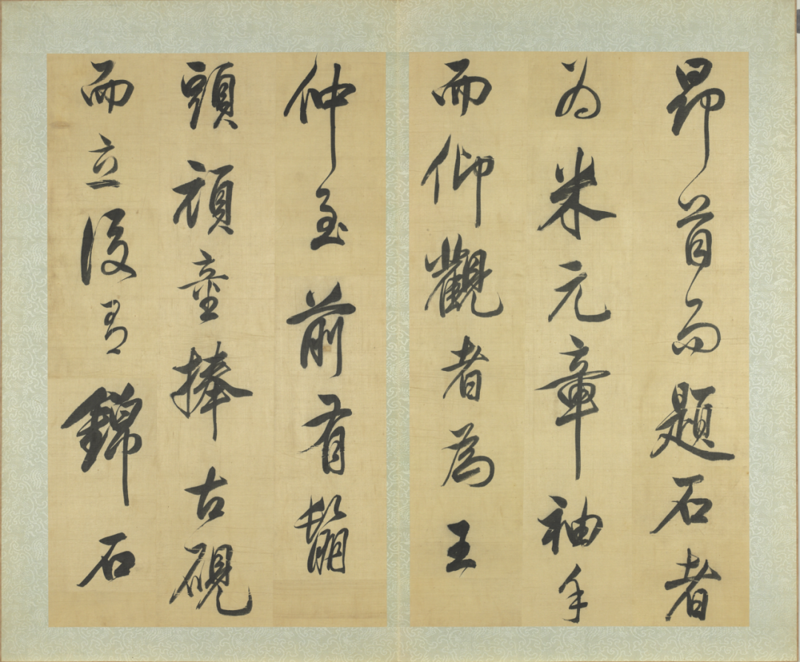 昂首而題石者
為米元章袖手
而仰觀者為王
仲至前有鬅
頭頑童捧古硯
而立後有錦石